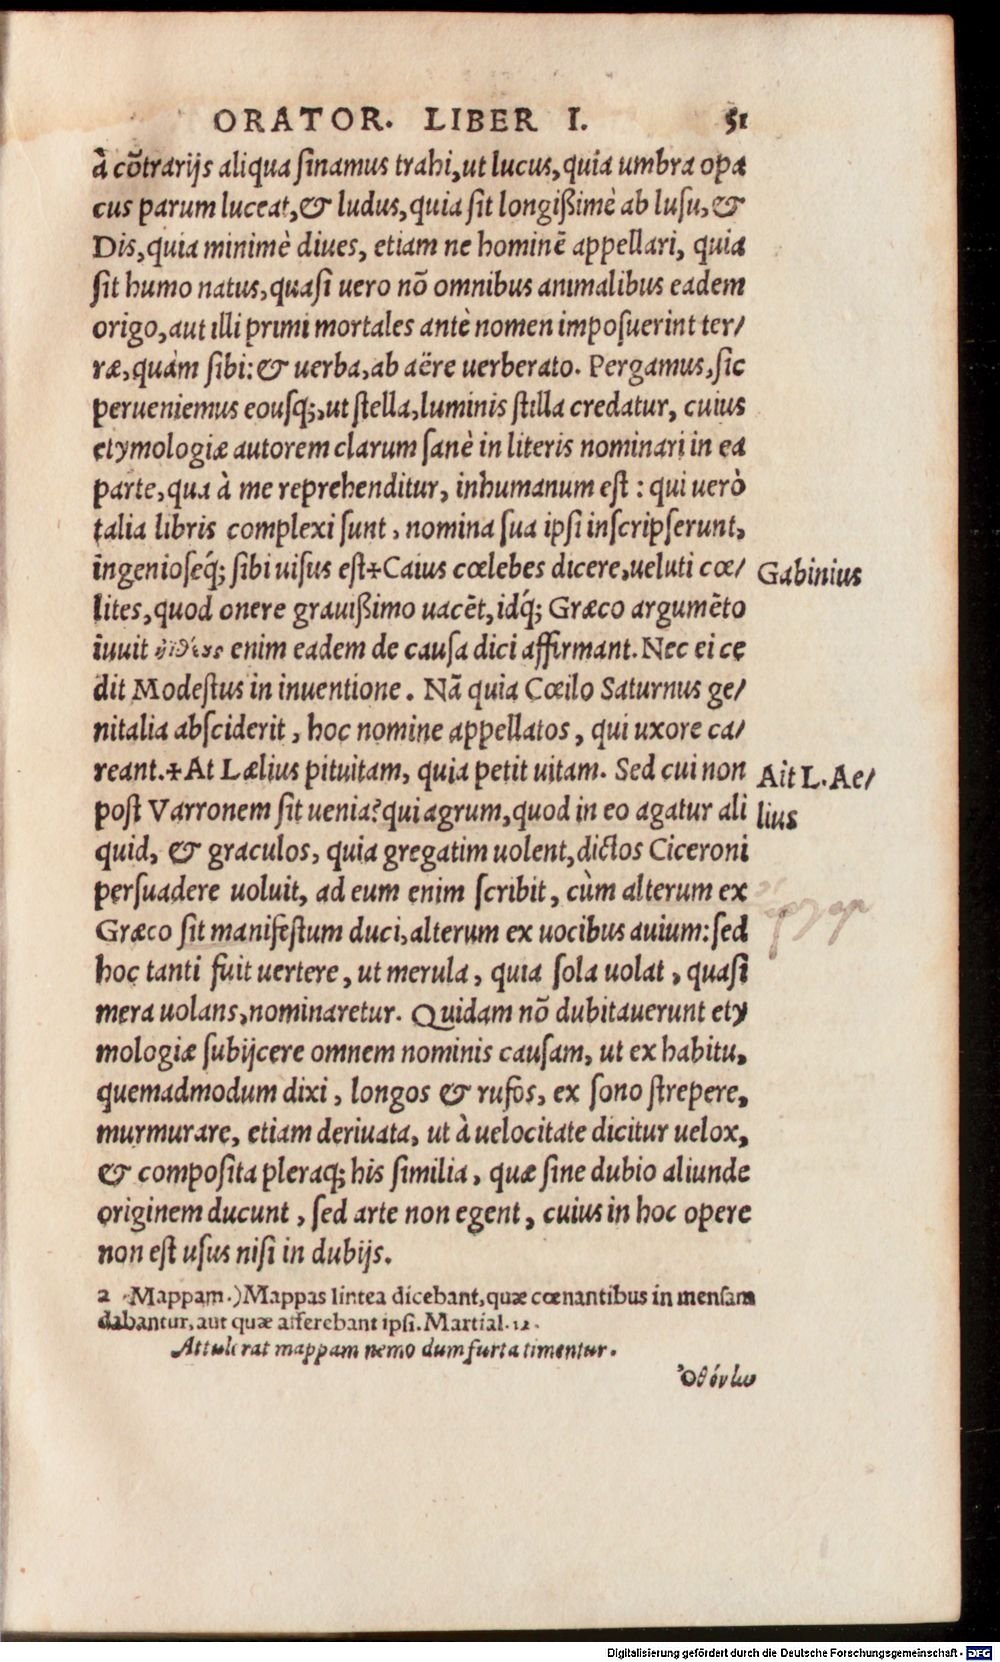 ORATOR. LIBER I. 51
à cõtrarijs aliqua sinamus trahi, ut lucus, quia umbra opa
cus parum luceat, & ludus, quia sit longißimè ab lusu, &
Dis, quia minimè diues, etiam ne hominē appellari, quia
sit humo natus, quasi uero nõ omnibus animalibus eadem
origo, aut illi primi mortales antè nomen imposuerint ter/
ræ, quàm sibi: & uerba, ab aëre uerberato. Pergamus, sic
perueniemus eousq;, ut stella, luminis stilla credatur, cuius
etymologiæ autorem clarum sanè in literis nominari in ea
parte, qua à me reprehenditur, inhumanum est : qui uerò
talia libris complexi sunt, nomina sua ipsi inscripserunt,
ingenioseq́; sibi uisus est ✝ Caius cœlebes dicere, ueluti cœ/
lites, quod onere grauißimo uacēt, idq́; Græco argumēto
iuuit ἠϊθέους enim eadem de causa dici affirmant. Nec ei ce
dit Modestus in inuentione. Nã quia Cœilo Saturnus ge/
nitalia absciderit, hoc nomine appellatos, qui uxore ca/
reant. ✝ At Lælius pituitam, quia petit uitam. Sed cui non
post Varronem sit uenia? qui agrum, quod in eo agatur ali
quid, & graculos, quia gregatim uolent, dictos Ciceroni
persuadere uoluit, ad eum enim scribit, cùm alterum ex
Græco sit manifestum duci, alterum ex uocibus auium: sed
hoc tanti fuit uertere, ut merula, quia sola uolat, quasi
mera uolans, nominaretur. Quidam nõ dubitauerunt ety
mologiæ subijcere omnem nominis causam, ut ex habitu,
quemadmodum dixi, longos & rufos, ex sono strepere,
murmurare, etiam deriuata, ut à uelocitate dicitur uelox,
& composita pleraq; his similia, quæ sine dubio aliunde
originem ducunt, sed arte non egent, cuius in hoc opere
non est usus nisi in dubijs.
Gabinius
Ait L. Ae/
lius
2 Mappam.) Mappas lintea dicebant, quæ cœnantibus in mensam
dabantur, aut quæ afferebant ipsi. Martial. 12.
Attulerat mappam nemo dum furta timentur.
Ὀθόνίω
Digitalisierung gefördert durch die Deutsche Forschungsgemeinschaft - DFG